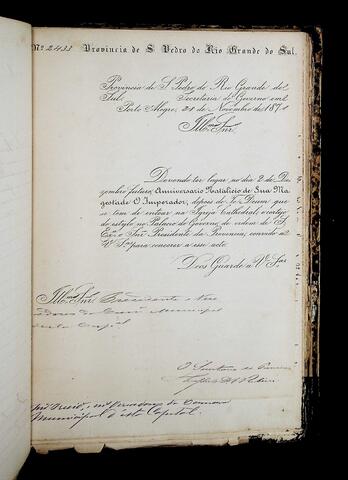 Nº 2433 Provincia de S Pedro do Rio Grande do Sul.
Provincia de S. Pedro do Rio Grande do
Sul. Secretaria do Governo em
Porto Alegre, de Novembro de 187
Illmo Snr.
Devendo ter logar no dia 2 de De
zembro futuro, Anniversario Natalicio de Sua Ma
gestade O Imperador, depois do Te-Deum que
se tem de entoar na Igreja Cathedral, o cortejo
do estylo no Palacio do Governo, de ordem de S.
Exª o Snr Presidente da Provincia, convido a
V Sª para concorrer a esse acto.
Deos Guarde a V Sas
Illmos Snrs Presidente e Vere
adores da Municipal
Capital
O Secretario da
mais Vereadores da Camara
Municipal d'esta Capital.